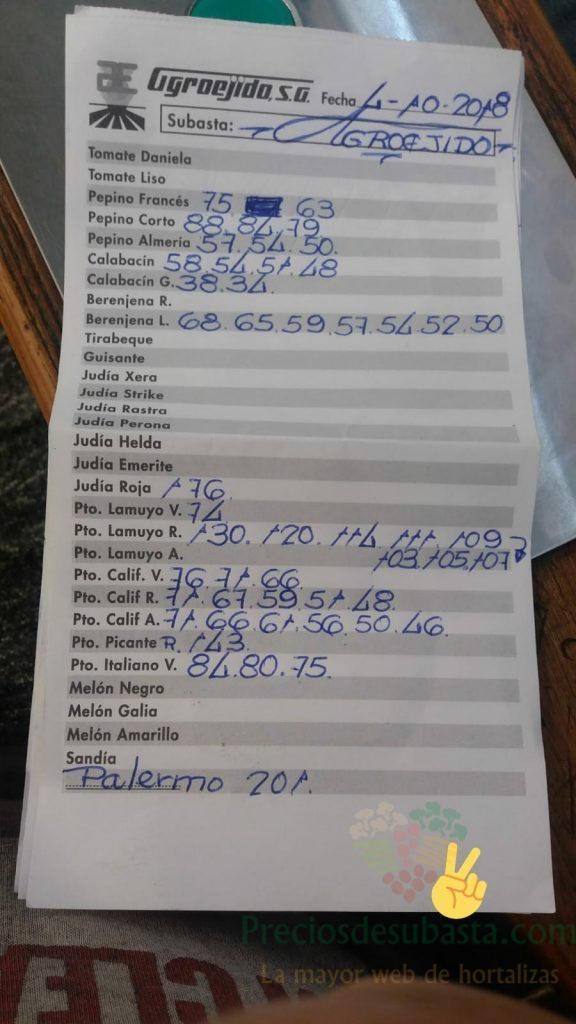 Agroejido, S.A. Fecha 4-10-2018
Subasta: AGROEJIDO
Tomate Daniela
Tomate Liso
Pepino Francés 75 63
Pepino Corto 88.84.79
Pepino Almería 57.54.50.
Calabacín 58.54.51.48
Calabacín G. 38.34.
Berenjena R.
Berenjena L. 68.65.59.57.54.52.50
Tirabeque
Guisante
Judía Xera
Judía Strike
Judía Rastra
Judía Perona
Judía Helda
Judía Emerite
Judía Roja 176.
Pto. Lamuyo V. 74
Pto. Lamuyo R. 130.120.114.111.109
Pto. Lamuyo A. 103.105.107
Pto. Calif. V. 76.71.66
Pto. Calif R. 71.67.59.51.48.
Pto. Calif A. 71.66.61.56.50.46.
Pto. Picante R. 143.
Pto. Italiano V. 84.80.75.
Melón Negro
Melón Galia
Melón Amarillo
Sandía
Palermo 201.
Preciosdesubasta.com
La mayor web de hortalizas